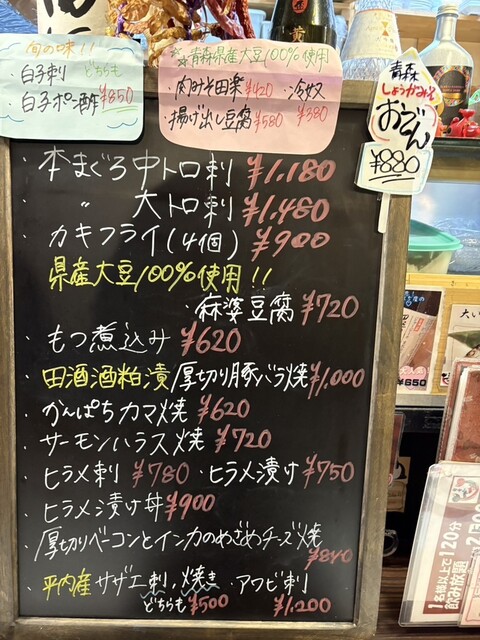 旬の味!!
・白子刺 どちらも
・白子ポン酢 ¥850
☆青森県産大豆100%使用
・肉みそ田楽 ¥420 ・冷奴 ¥380
・揚げ出し豆腐 ¥580
青森
しょうがみそ
おでん
¥880
・本まぐろ中トロ刺 ¥1.180
・〃 大トロ刺 ¥1.480
・カキフライ(4個) ¥900
県産大豆100%使用!!
・麻婆豆腐 ¥720
・もつ煮込み ¥620
・田酒酒粕漬厚切り豚バラ焼 ¥1,000
・かんぱちカマ焼 ¥620
・サーモンハラス焼 ¥720
・ヒラメ刺 ¥780 ・ヒラメ漬け ¥750
・ヒラメ漬け丼 ¥900
・厚切りベーコンとインカのめざめチーズ焼 ¥840
・平内産 サザエ刺,焼き ・アワビ刺
どちらも ¥500 ¥1.200
¥650
1名様以上で120分
飲み放題